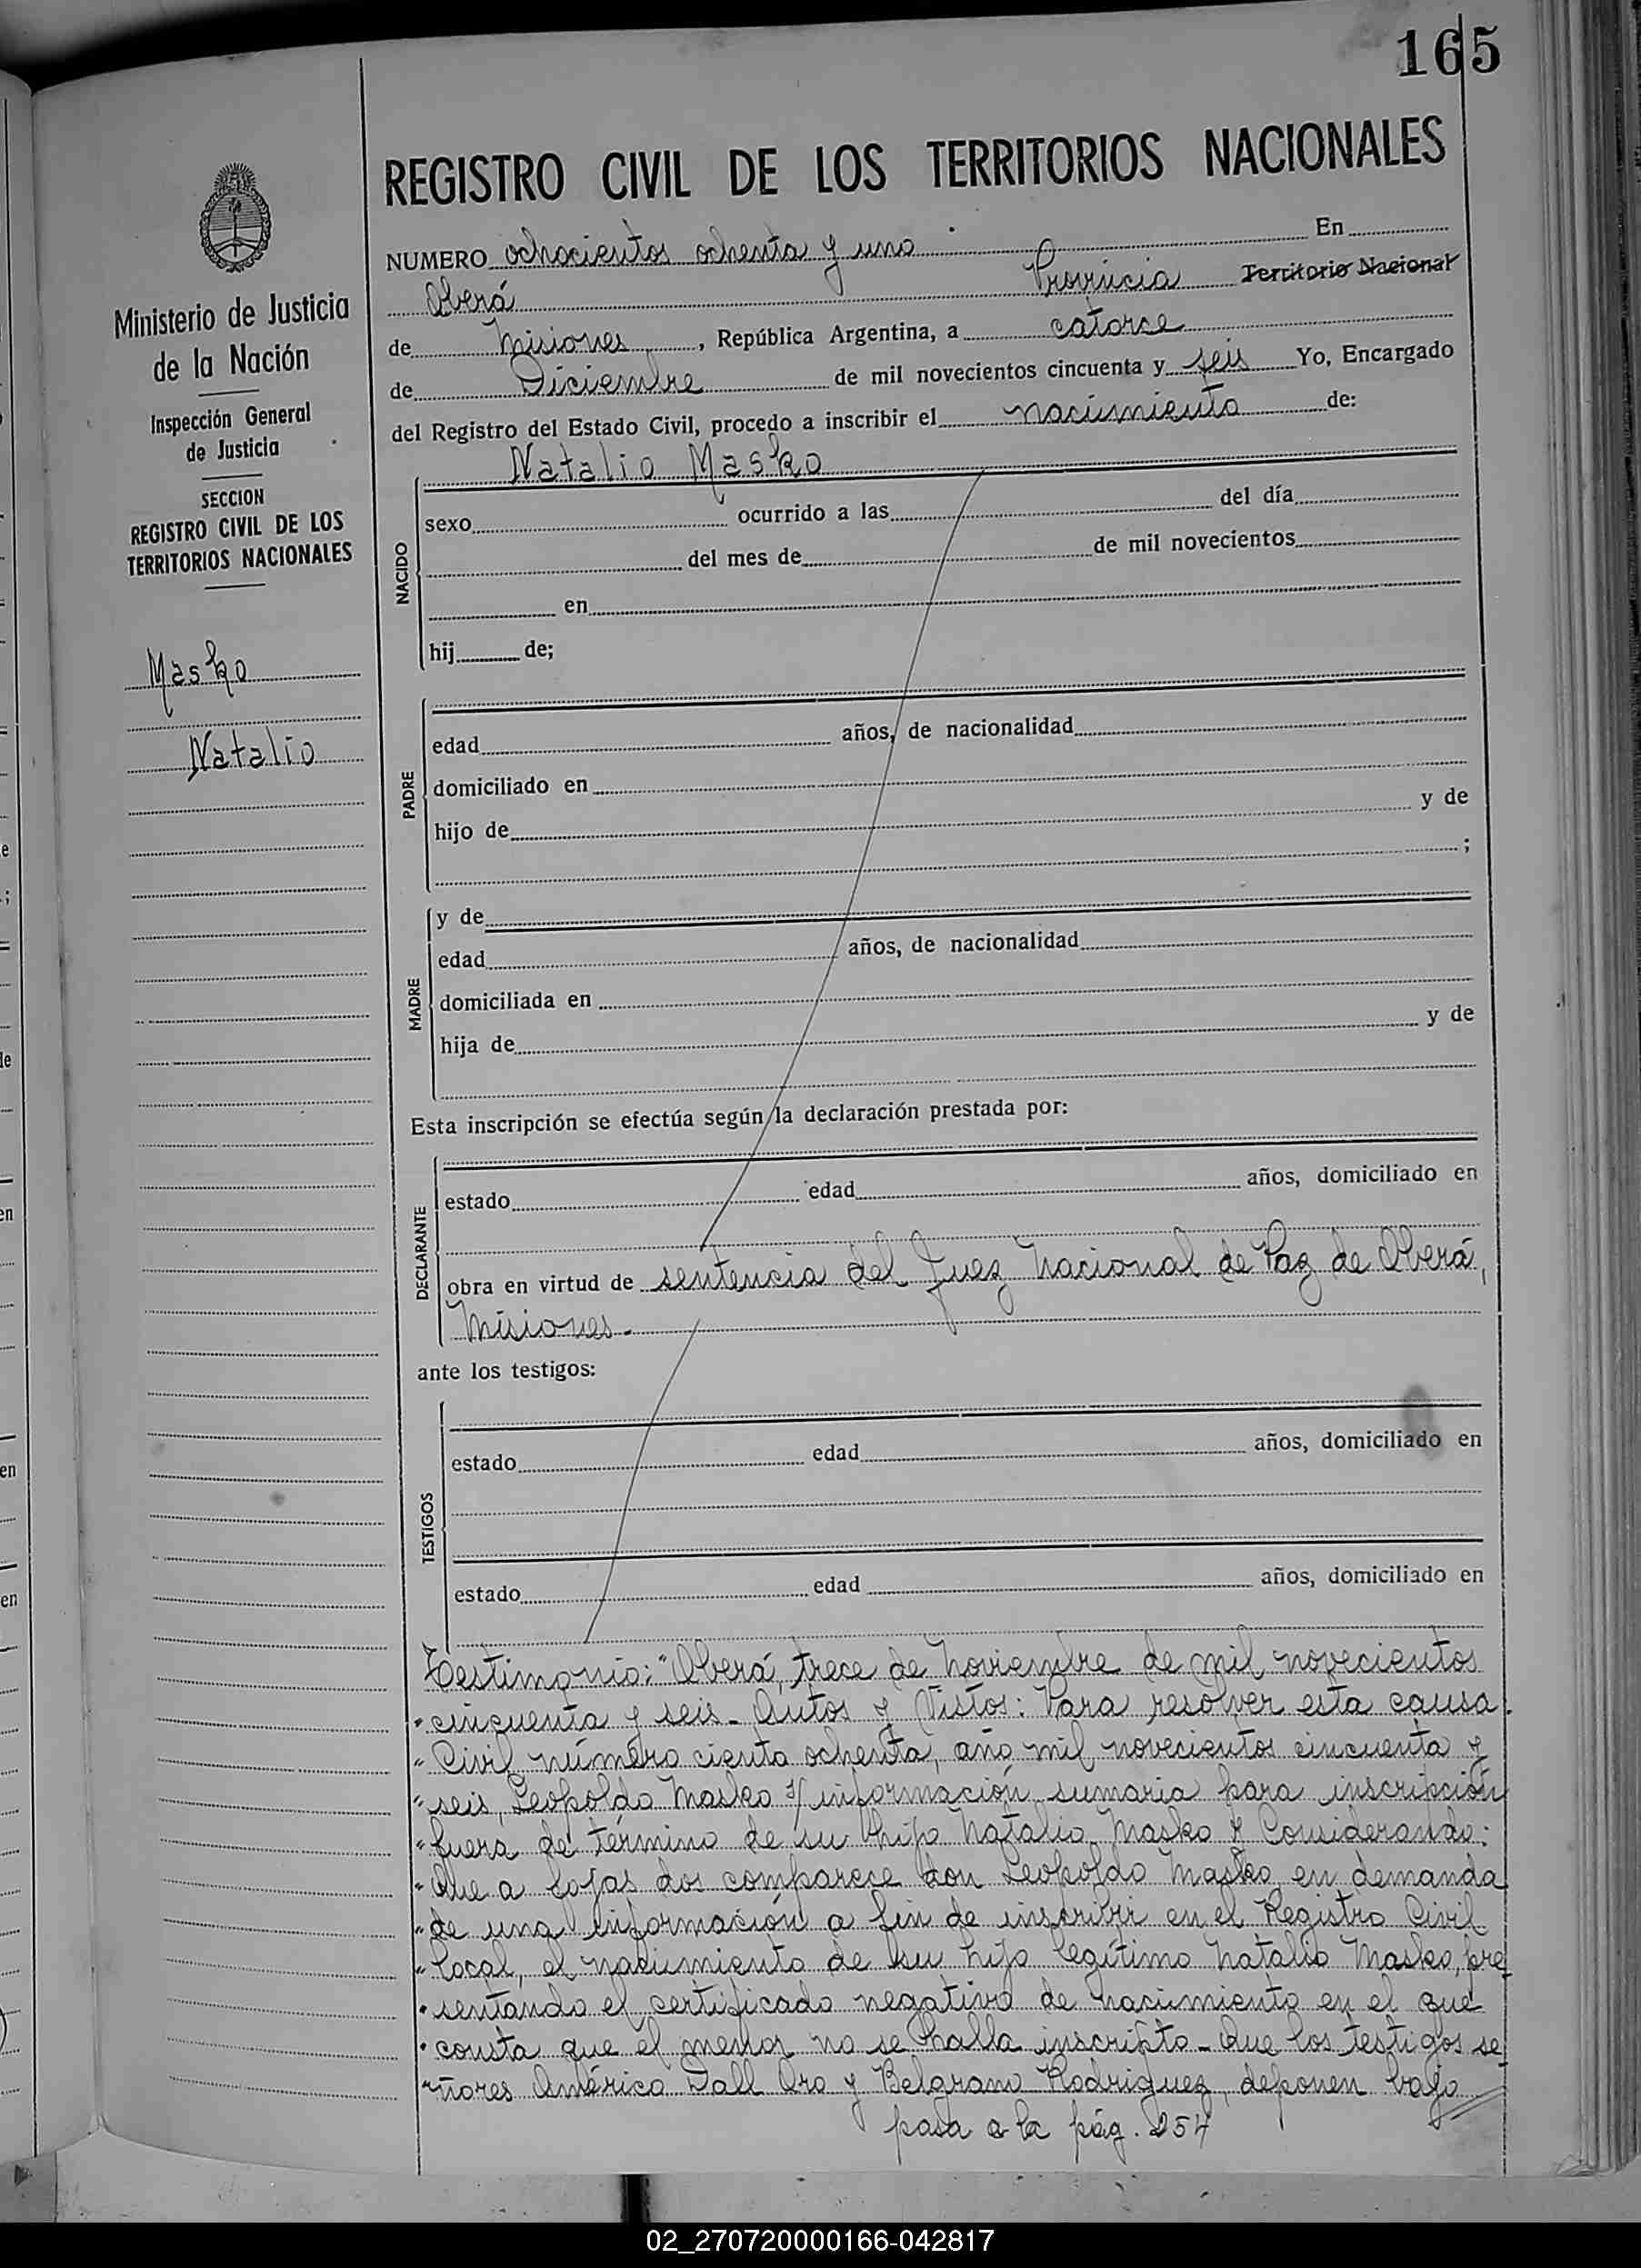 165
REGISTRO CIVIL DE LOS TERRITORIOS NACIONALES
Ministerio de Justicia
de la Nación
Inspección General
de Justicia
SECCION
REGISTRO CIVIL DE LOS
TERRITORIOS NACIONALES
Masko
Natalio
NUMERO ochocientos ochenta y uno En
Oberá Provincia Territorio Nacional
de Misiones, República Argentina, a catorce
de Diciembre de mil novecientos cincuenta y seis Yo, Encargado
del Registro del Estado Civil, procedo a inscribir el nacimiento de:
Natalio Masko
NACIDO
sexo ocurrido a las del día
del mes de de mil novecientos
en
hij de;
PADRE
edad años, de nacionalidad
domiciliado en
hijo de y de
;
MADRE
y de
edad años, de nacionalidad
domiciliada en
hija de y de
Esta inscripción se efectúa según la declaración prestada por:
DECLARANTE
estado edad años, domiciliado en
obra en virtud de sentencia del Juez Nacional de Paz de Oberá,
Misiones.
ante los testigos:
TESTIGOS
estado edad años, domiciliado en
estado edad años, domiciliado en
Testimonio: "Oberá, trece de Noviembre de mil novecientos
"cincuenta y seis - Autos y Vistos: Para resolver esta causa
"Civil número ciento ochenta, año mil novecientos cincuenta y
"seis, Leopoldo Masko s/ información sumaria para inscripción
"fuera de término de su hijo Natalio Masko y Considerando:
"Que a fojas dos comparece don Leopoldo Masko en demanda
"de una información a fin de inscribir en el Registro Civil
"local, el nacimiento de su hijo legítimo Natalio Masko, pre
"sentando el certificado negativo de nacimiento en el que
"consta que el menor no se halla inscripto - Que los testigos se
"ñores Américo Dall Oro y Belgrano Rodriguez, deponen bajo
pasa a la pág. 254
02_270720000166-042817